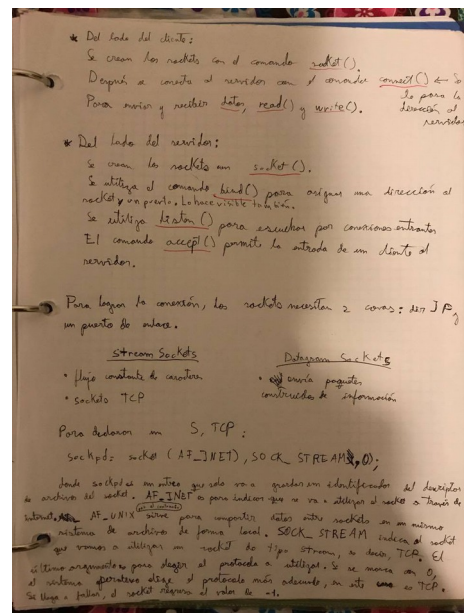 * Del lado del cliente:
Se crean los sockets con el comando socket().
Después se conecta al servidor con el comando connect() ← Se
le pasa la
dirección al
servidor
Para enviar y recibir datos, read() y write().
* Del lado del servidor:
Se crean los sockets con socket().
Se utiliza el comando bind() para asignar una dirección al
socket y un puerto. Lo hace visible también.
Se utiliza listen() para escuchar por conexiones entrantes
El comando accept() permite la entrada de un cliente al
servidor.
Para lograr la conexión, los sockets necesitan 2 cosas: dir IP y
un puerto de enlace.
Stream Sockets
• flujo constante de caracteres
• sockets TCP
Datagram Sockets
• envía paquetes
construidos de información
Para declarar un S, TCP:
sockfd= socket (AF_INET), SOCK_STREAM, 0);
donde sockfd es un entero que solo va a guardar un identificador del descriptor
de archivos del socket. AF_INET es para indicar que se va a utilizar el socket a través de
internet. AF_UNIX por el contrario sirve para compartir datos entre sockets en un mismo
sistema de archivos de forma local. SOCK_STREAM indica al socket
que vamos a utilizar un socket de tipo stream, es decir, TCP. El
último argumento es para elegir el protocolo a utilizar. Si se marca con 0,
el sistema operativo elige el protocolo más adecuado, en este caso es TCP.
Si llega a fallar, el socket regresa el valor de -1.